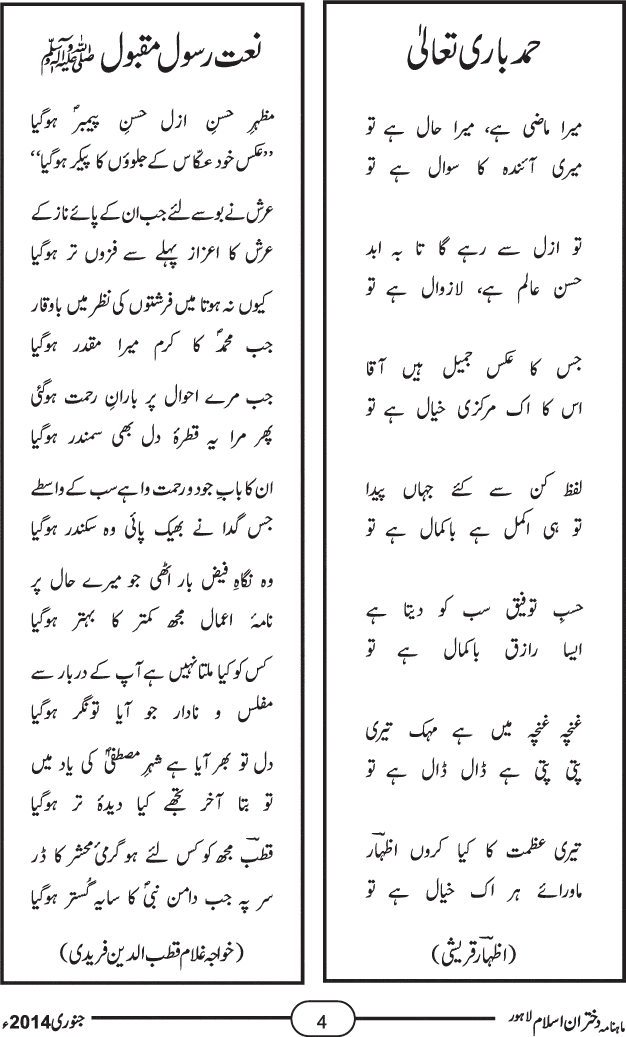 حمد باری تعالیٰ
میرا ماضی ہے، میرا حال ہے تو
میری آئندہ کا سوال ہے تو
تو ازل سے رہے گا تا بہ ابد
حسن عالم ہے، لازوال ہے تو
جس کا عکس جمیل ہیں آقا
اس کا اک مرکزی خیال ہے تو
لفظ کن سے کئے جہاں پیدا
تو ہی اکمل ہے باکمال ہے تو
حسبِ توفیق سب کو دیتا ہے
ایسا رازق باکمال ہے تو
غنچہ غنچہ میں ہے مہک تیری
پتی پتی ہے ڈال ڈال ہے تو
تیری عظمت کا کیا کروں اظہارؔ
ماورائے ہر اک خیال ہے تو
(اظہارؔ قریشی)
نعت رسول مقبول ﷺ
مظہرِ حسنِ ازل حسنِ پیمبرؐ ہوگیا
’’عکس خود عکّاس کے جلوؤں کا پیکر ہوگیا‘‘
عرش نے بوسے لئے جب ان کے پائے ناز کے
عرش کا اعزاز پہلے سے فزوں تر ہوگیا
کیوں نہ ہوتا میں فرشتوں کی نظر میں باوقار
جب محمدؐ کا کرم میرا مقدر ہوگیا
جب مرے احوال پر بارانِ رحمت ہوگئی
پھر مرا یہ قطرۂ دل بھی سمندر ہوگیا
ان کا بابِ جود و رحمت وا ہے سب کے واسطے
جس گدا نے بھیک پائی وہ سکندر ہوگیا
وہ نگاہِ فیض بار اٹھی جو میرے حال پر
نامۂ اعمال مجھ کمتر کا بہتر ہوگیا
کس کو کیا ملتا نہیں ہے آپ کے دربار سے
مفلس و نادار جو آیا تونگر ہوگیا
دل تو بھر آیا ہے شہرِ مصطفیٰؐ کی یاد میں
تو بتا آخر تجھے کیا دیدۂ تر ہوگیا
قطبؔ مجھ کو کس لئے ہو گرمیٔ محشر کا ڈر
سر پہ جب دامن نبیؐ کا سایہ گُستر ہوگیا
(خواجہ غلام قطب الدین فریدی)
ماہنامہ دختران اسلام لاہور
4
جنوری 2014ء